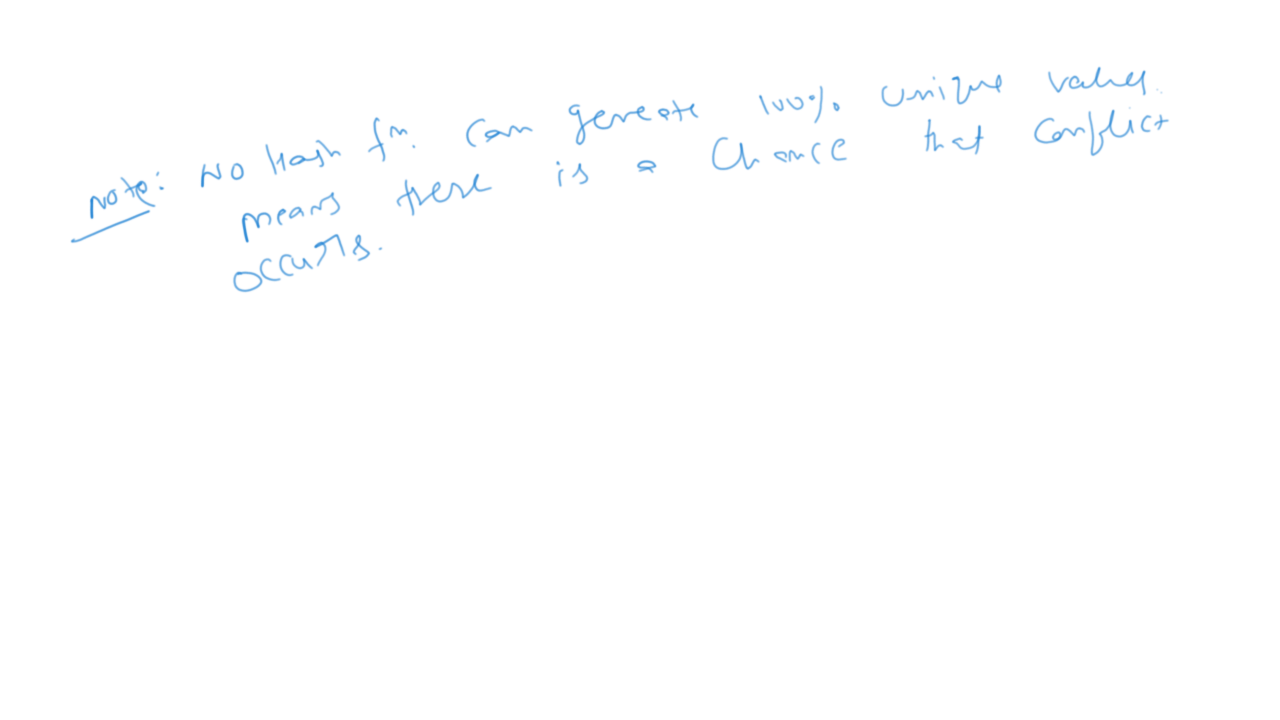 Note: No Hash fn. can genreate 100% unique values.
means there is a chance that conflict
occurrs.